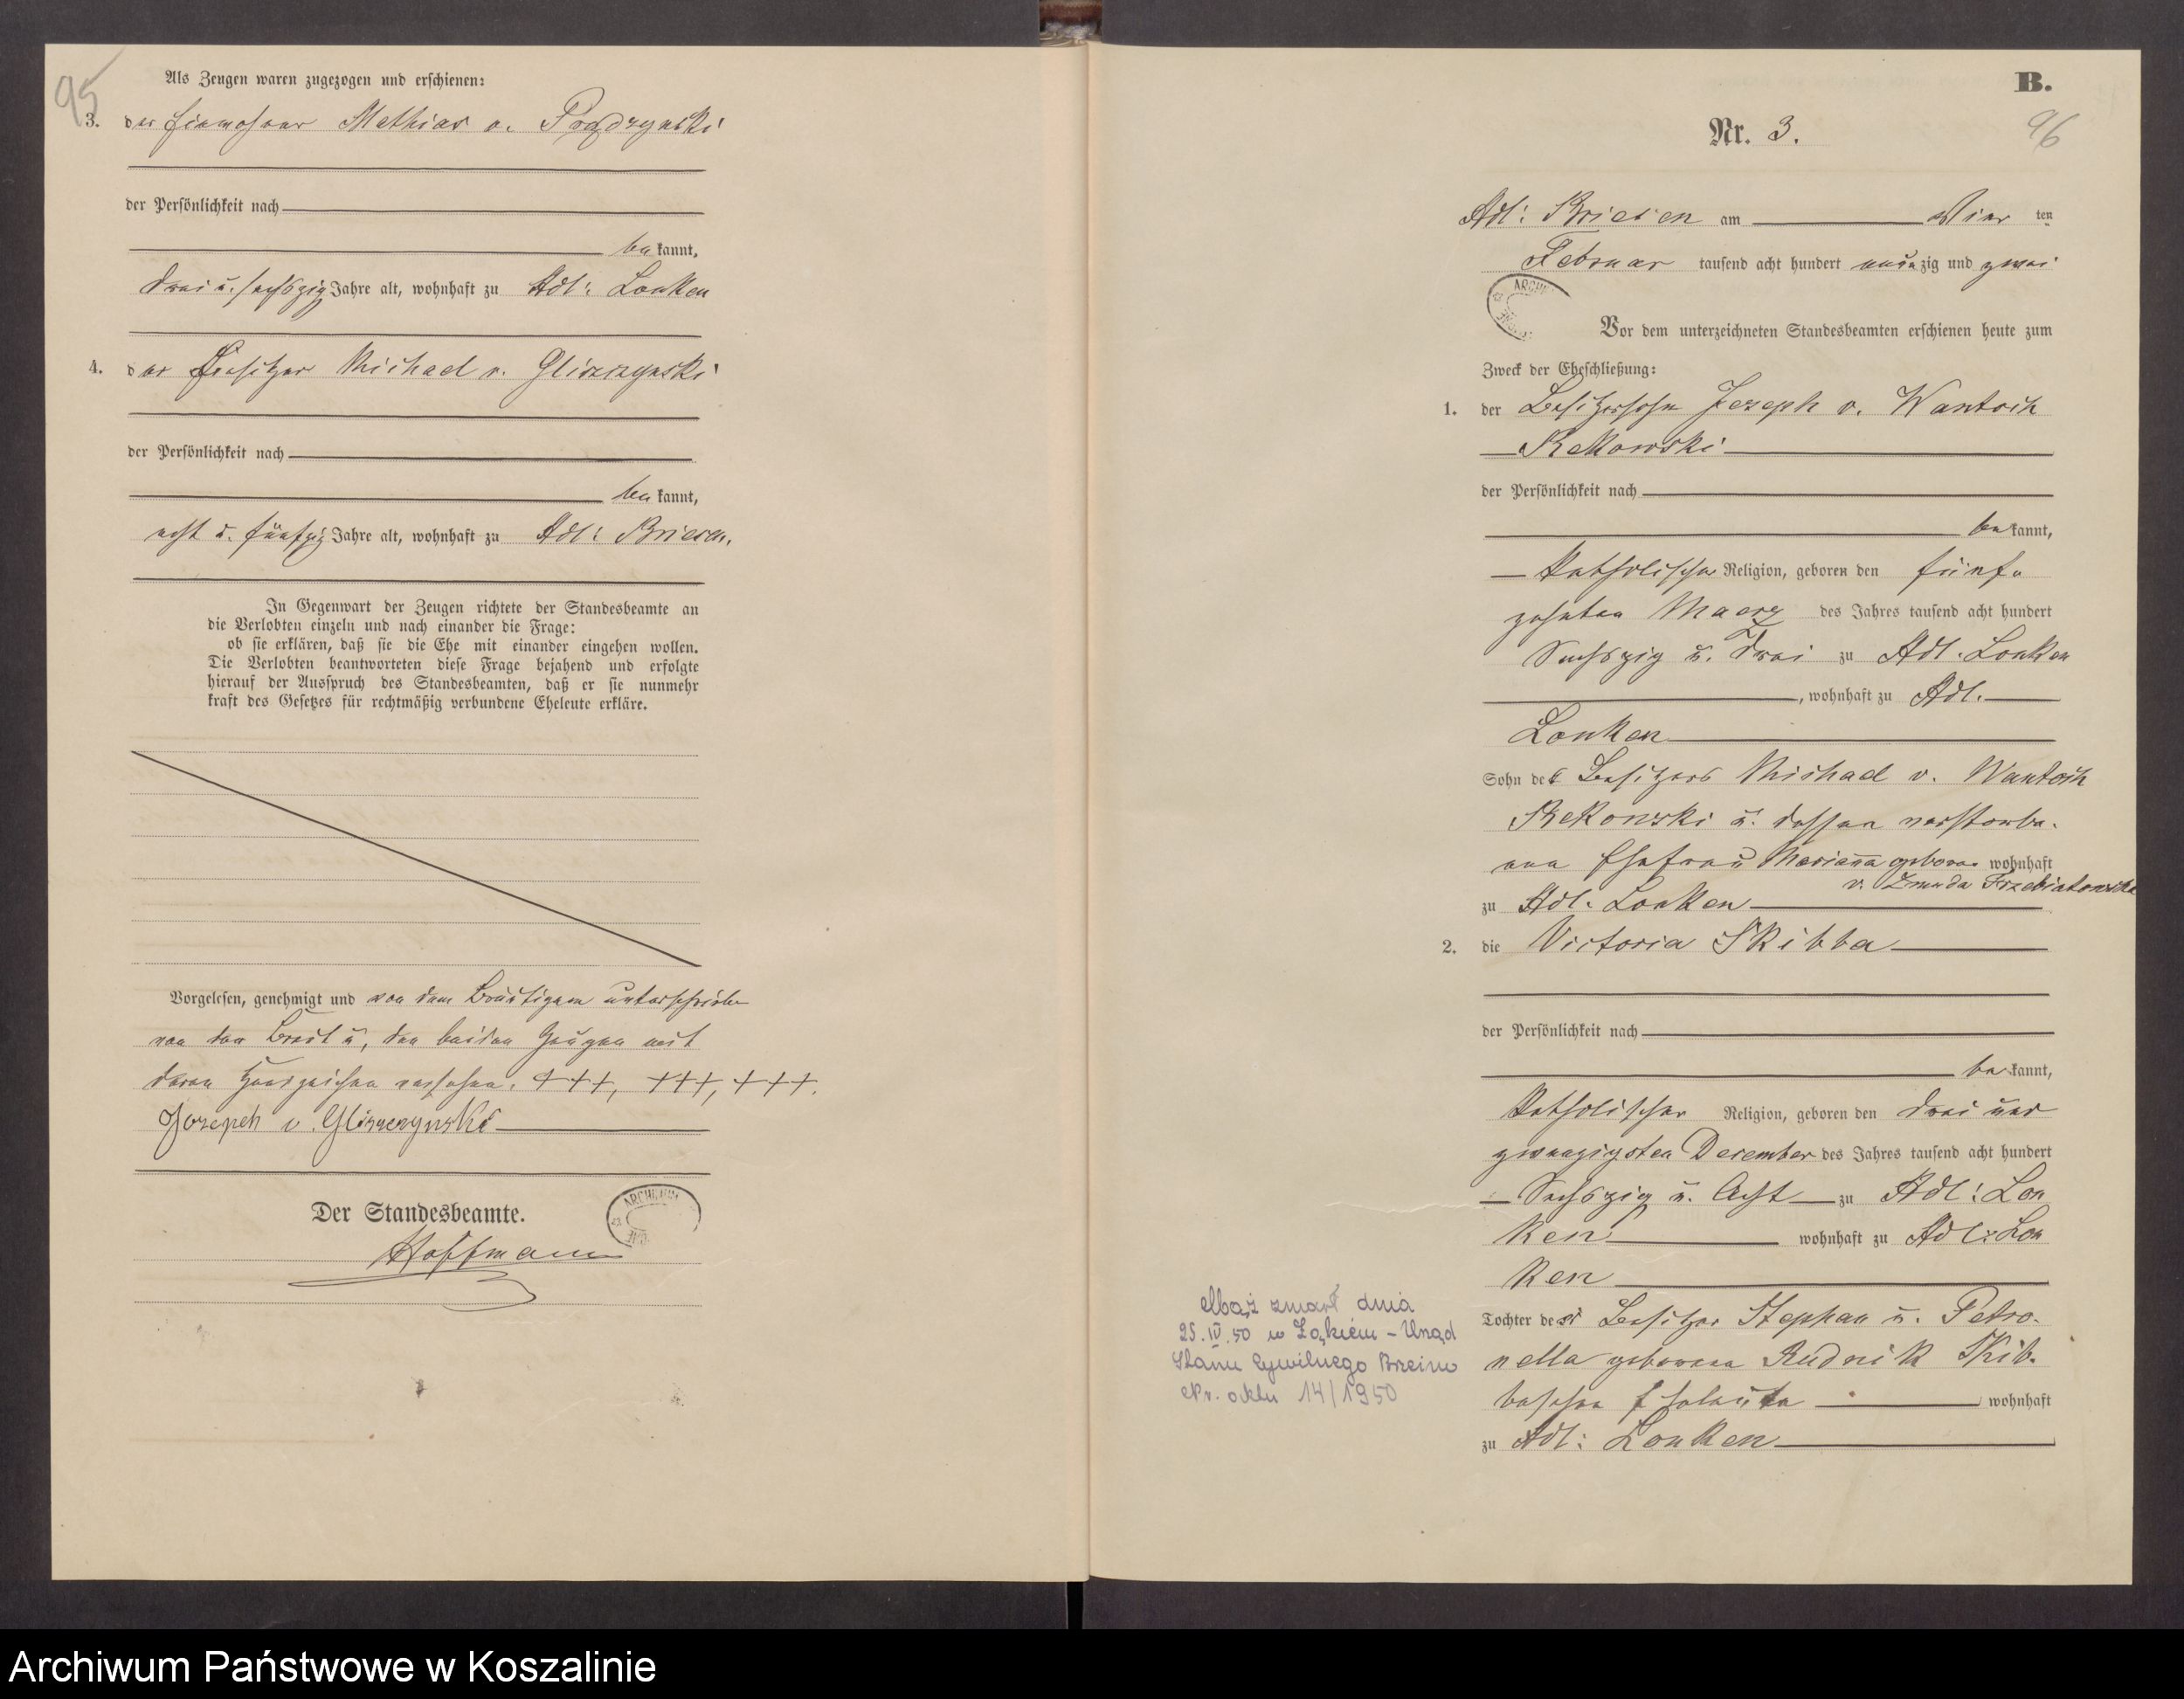 95
Als Zeugen waren zugezogen und erschienen:
3. der Einwohner Mathias v. Prądzynski
der Persönlichkeit nach
be kannt,
drei u. sechszig Jahre alt, wohnhaft zu Adl: Lonken
4. der Besitzer Michael v. Gliszczynski
der Persönlichkeit nach
be kannt,
acht u. fünfzig Jahre alt, wohnhaft zu Adl: Briesen.
In Gegenwart der Zeugen richtete der Standesbeamte an
die Verlobten einzeln und nach einander die Frage:
ob sie erklären, daß sie die Ehe mit einander eingehen wollen.
Die Verlobten beantworteten diese Frage bejahend und erfolgte
hierauf der Ausspruch des Standesbeamten, daß er sie nunmehr
kraft des Gesetzes für rechtmäßig verbundene Eheleute erkläre.
Vorgelesen, genehmigt und von dem Bräutigam unterschrieben
von der Braut u, den beiden Zeugen mit
deren Handzeichen versehen. +++, +++, +++.
Jozepch v. Gliszczynski
Der Standesbeamte.
ARCHIWUM
Hoffmann
B.
Nr. 3.
96
Adl: Briesen am Vier ten
Februar tausend acht hundert neun zig und zwei
Vor dem unterzeichneten Standesbeamten erschienen heute zum
Zweck der Eheschließung:
1. der Besitzersohn Jozeph v. Wantoch
Rekowski
der Persönlichkeit nach
be kannt,
Katholischer Religion, geboren den fünf-
zehnten Maerz des Jahres tausend acht hundert
Sechszig u. drei zu Adl. Lonken
, wohnhaft zu Adl.
Lonken
Sohn des Besitzers Michael v. Wantoch
Rekowski u. dessen verstorbe-
nen Ehefrau Marianna geboren wohnhaft
v. Zmuda Trzebiatowska
zu Adl. Lonken
2. die Victoria Skibba
der Persönlichkeit nach
be kannt,
Katholischer Religion, geboren den drei und
zwanzigsten December des Jahres tausend acht hundert
Sechszig u. Acht zu Adl: Lon
ken wohnhaft zu Adl: Lon
ken
Tochter der Besitzer Stephan u. Petro-
nella geborene Rudnik Skib-
baschen Eheleute wohnhaft
zu Adl: Lonken
Mąż zmarł dnia
25.IV.50 w Łąkiem - Urząd
Stanu Cywilnego Brzeźno
Nr. aktu 14/1950
Archiwum Państwowe w Koszalinie